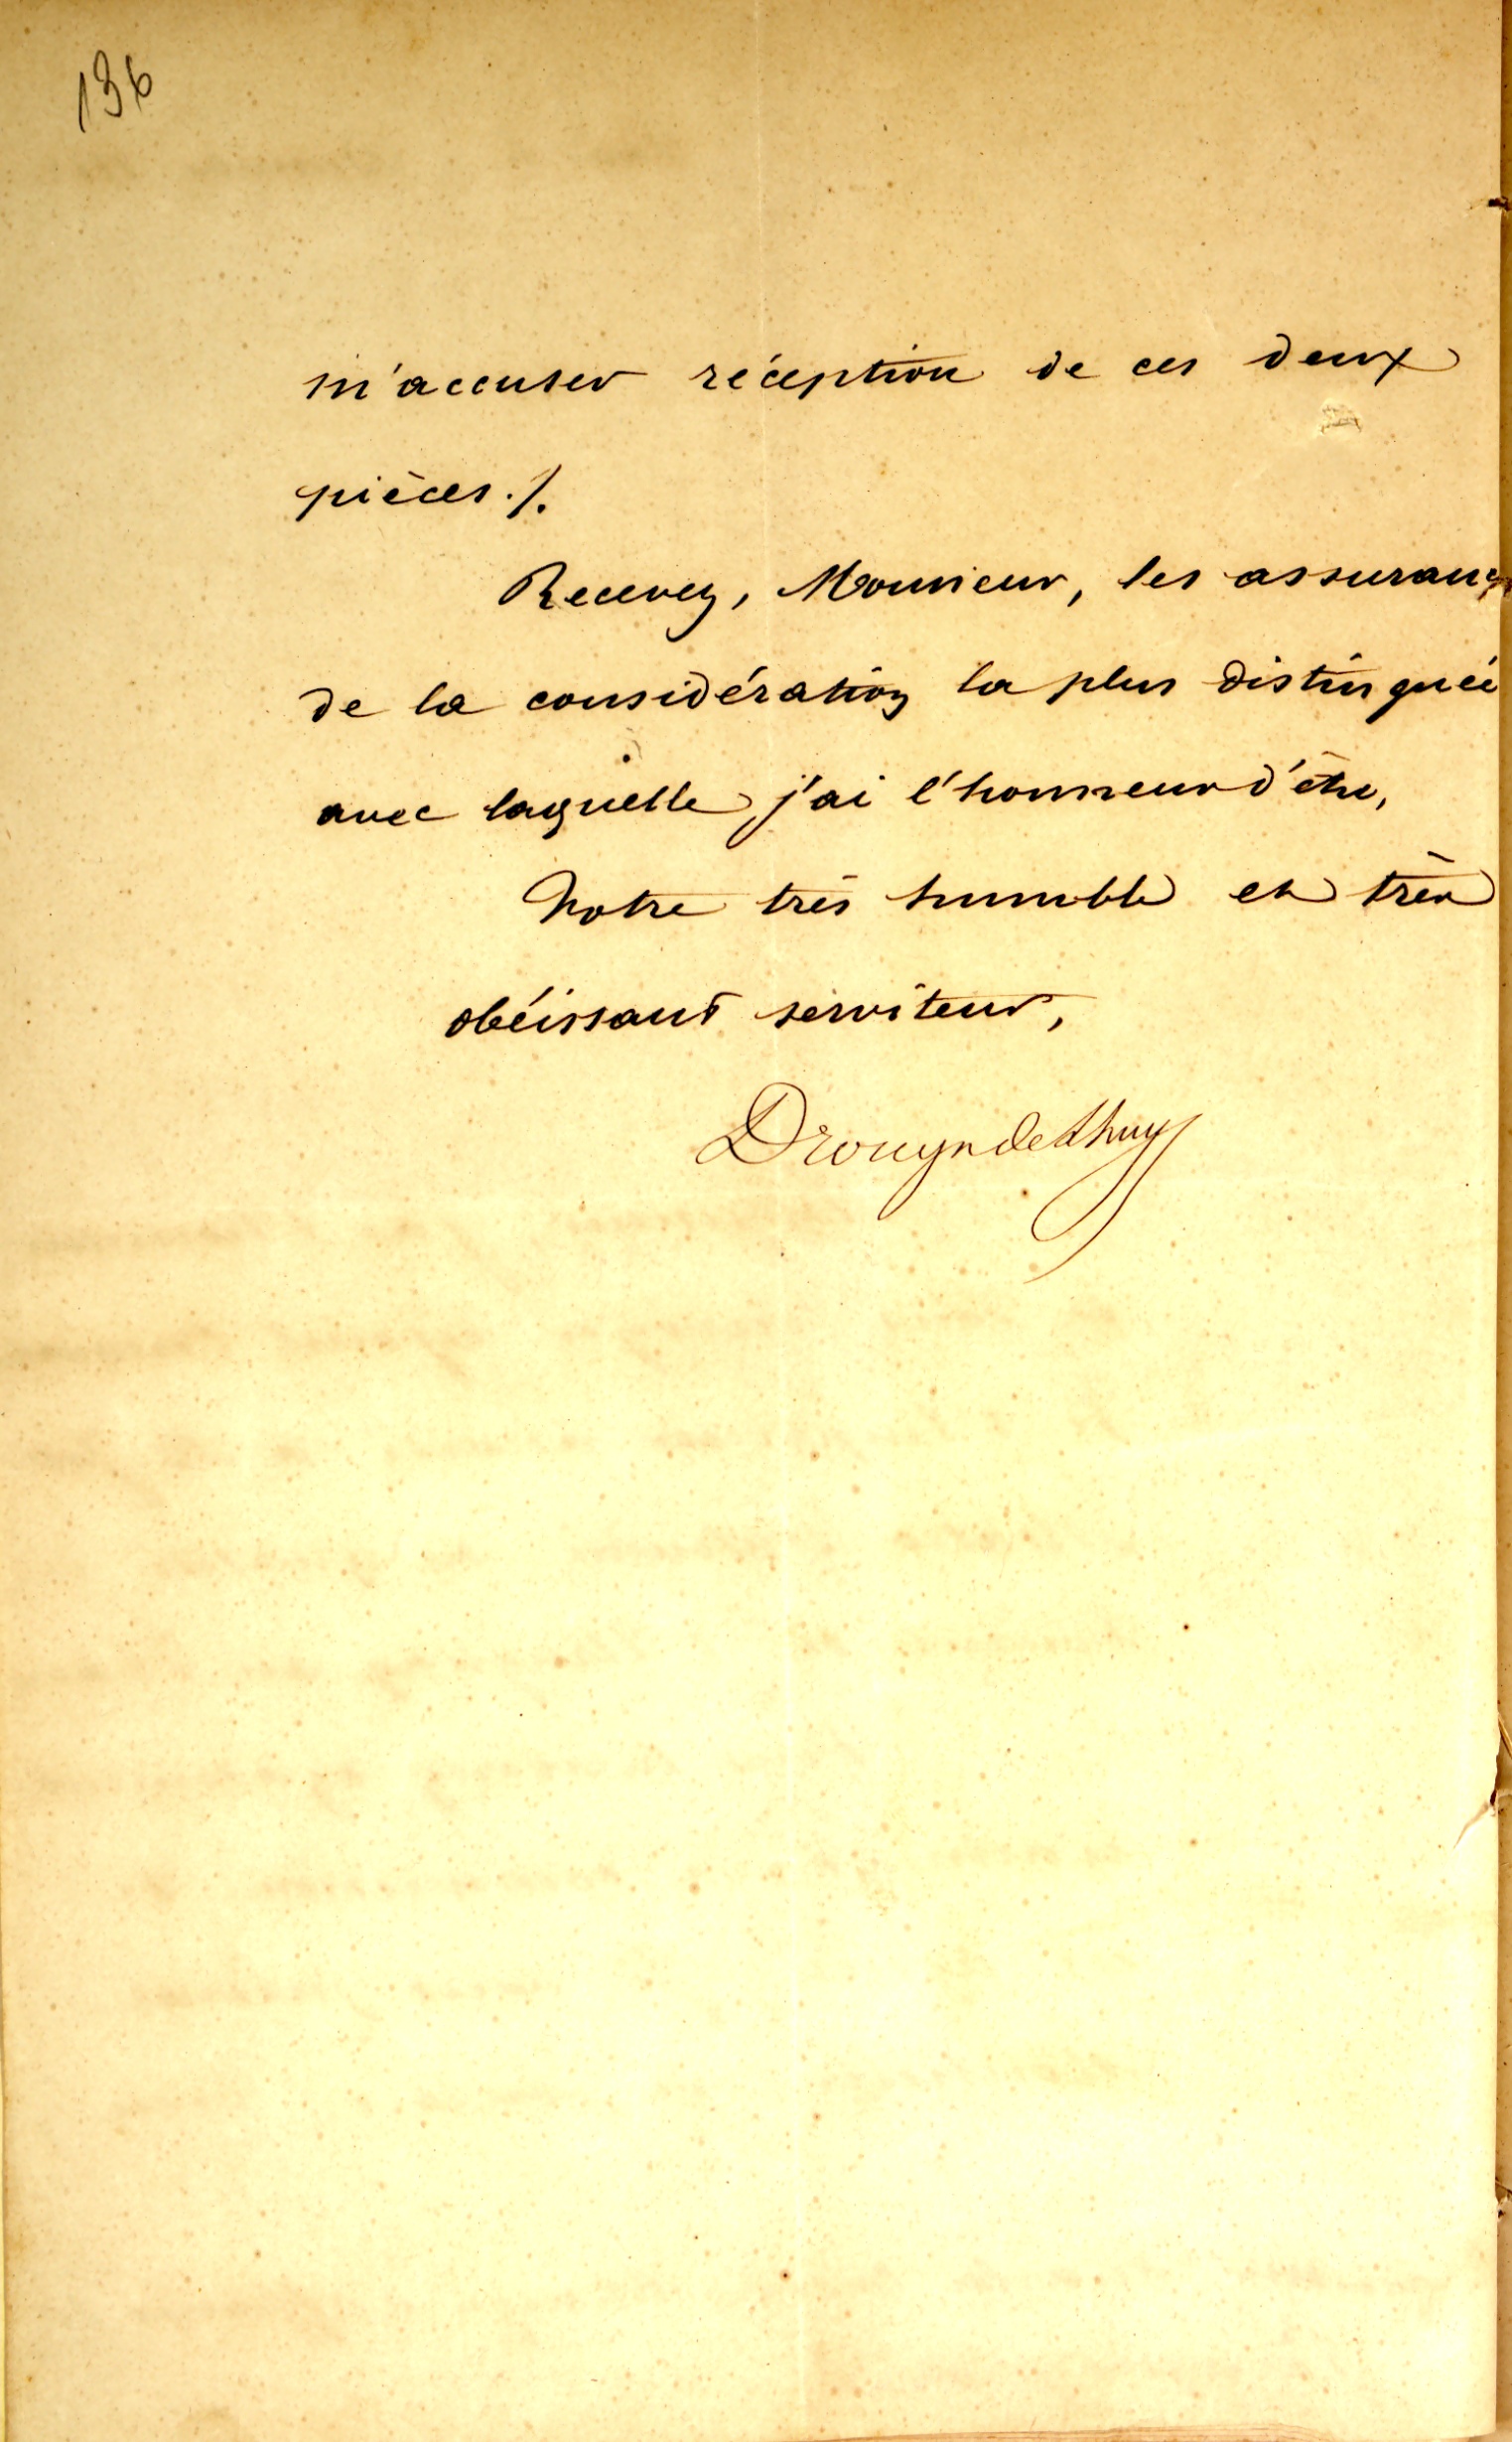 136
m'accuser réception de ces deux
pièces ./.
Recevez, Monsieur, les assurances
de la considération la plus distinguée
avec laquelle j'ai l'honneur d'être,
Votre très humble et très
obéissant serviteur,
Drouyn de Lhuys